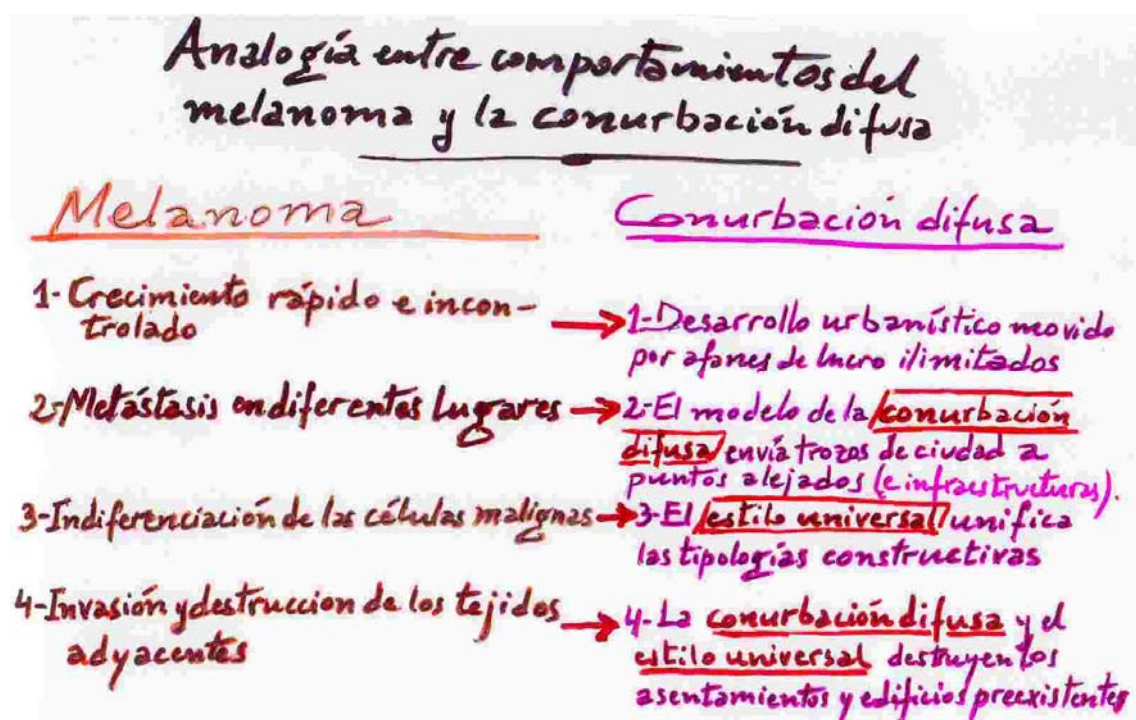 Analogía entre comportamientos del
melanoma y la conurbación difusa
Melanoma
1- Crecimiento rápido e incon-
trolado
2-Metástasis en diferentes lugares
3-Indiferenciación de las células malignas
4-Invasión y destruccion de los tejidos
adyacentes
Conurbación difusa
1-Desarrollo urbanístico movido
por afanes de lucro ilimitados
2-El modelo de la conurbación
difusa envía trozos de ciudad a
puntos alejados (e infraestructuras).
3-El estilo universal unifica
las tipologías constructivas
4-La conurbación difusa y el
estilo universal destruyen los
asentamientos y edificios preexistentes